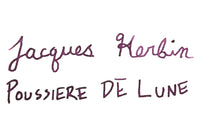 Jacques Herbin
POUSSIERE DE LUNE